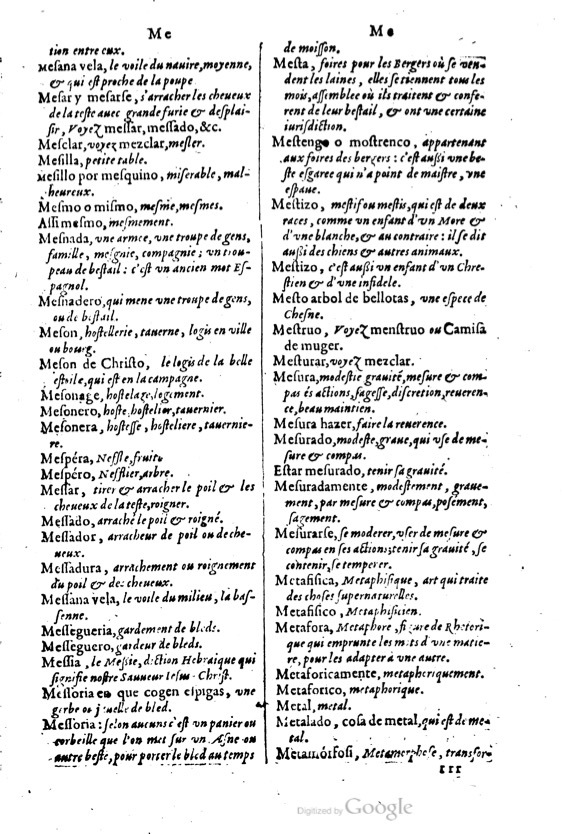 Me
tion entre eux.
Mesana vela, le voile du nauire, moyenne,
& qui est proche de la poupe
Mesar y mesarse, s'arracher les cheueux
de la teste auec grande furie & desplai-
sir, Voyez messar, messado, &c.
Mesclar, voyez mezclar, mesler.
Mesilla, petite table.
Mesillo por mesquino, miserable, mal-
heureux.
Mesmo o mismo, mesme, mesmes.
Assi mesmo, mesmement.
Mesnada, vne armee, vne troupe de gens,
famille, mesgnie, compagnie; vn trou-
peau de bestail: c'est vn ancien mot Es-
pagnol.
Mesnadero, qui mene vne troupe de gens,
ou de bestail.
Meson, hostellerie, tauerne, logis en ville
ou bourg.
Meson de Christo, le logis de la belle
estoile, qui est en la campagne.
Mesonage, hostelage, logement.
Mesonero, hoste, hostelier, tauernier.
Mesonera, hostesse, hosteliere, tauernie-
re.
Mespéra, Neffle, fruit.
Mespéro, Nefflier, arbre.
Messar, tirer & arracher le poil & les
cheueux de la teste, roigner.
Messado, arraché le poil & roigné.
Messador, arracheur de poil ou de che-
ueux.
Messadura, arrachement ou roignement
du poil & des cheueux.
Messana vela, le voile du milieu, la bas-
senne.
Messegueria, gardement de bleds.
Messeguero, gardeur de bleds.
Messia, le Messie, diction Hebraique qui
signifie nostre Sauueur Iesus-Christ.
Messoria en que cogen espigas, vne
gerbe ou jauelle de bled.
Messoria: selon aucuns c'est vn panier ou
corbeille que l'on met sur vn Asne ou
autre beste, pour porter le bled au temps
Me
de moisson.
Mesta, foires pour les Bergers où se ven-
dent les laines, elles se tiennent tous les
mois, assemblee où ils traitent & confe-
rent de leur bestail, & ont vne certaine
iurisdiction.
Mestengo o mostrenco, appartenant
aux foires des bergers: c'est aussi vne be-
ste esgaree qui n'a point de maistre, vne
espaue.
Mestizo, mestif ou mestis, qui est de deux
races, comme vn enfant d'vn More &
d'vne blanche, & au contraire: il se dit
aussi des chiens & autres animaux.
Mestizo, c'est aussi vn enfant d'vn Chre-
stien & d'vne infidele.
Mesto arbol de bellotas, vne espece de
Chesne.
Mestruo, Voyez menstruo ou Camisa
de muger.
Mesturar, voyez mezclar.
Mesura, modestie grauité, mesure & com-
pas és actions, sagesse, discretion, reueren-
ce, beau maintien.
Mesura hazer, faire la reuerence.
Mesurado, modeste, graue, qui vse de me-
sure & compas.
Estar mesurado, tenir sa grauité.
Mesuradamente, modestement, graue-
ment, par mesure & compas, posément,
sagement.
Mesurarse, se moderer, vser de mesure &
compas en ses actions; tenir sa grauité, se
contenir, se temperer.
Metafisica, Metaphisique, art qui traite
des choses supernaturelles.
Metafisico, Metaphisicien.
Metafora, Metaphore, figure de Rhetori-
que qui emprunte les mots d'vne matie-
re, pour les adapter à vne autre.
Metaforicamente, metaphoriquement.
Metaforico, metaphorique.
Metal, metal.
Metalado, cosa de metal, qui est de me-
tal.
Metamorfosi, Metamorphose, transfor-
III
Digitized by Google